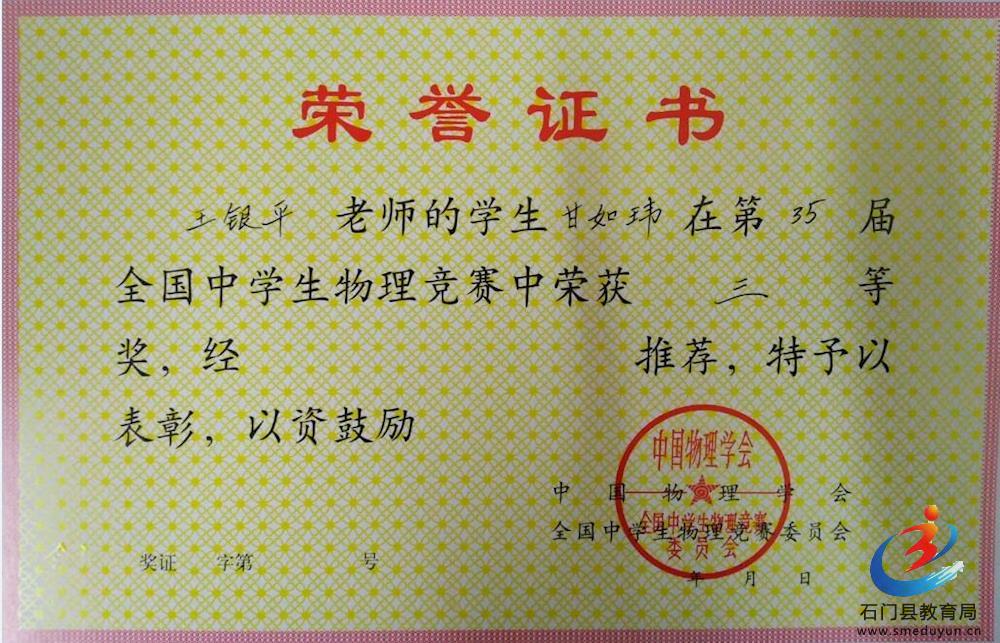 荣誉证书
王银平 老师的学生甘如玮在第35届
全国中学生物理竞赛中荣获 三 等
奖，经 推荐，特予以
表彰，以资鼓励
中国物理学会
全国中学生物理竞赛
委员会
中国物理学会
全国中学生物理竞赛委员会
年 月 日
奖证 字第 号
石门县教育局
www.smeduyun.cn